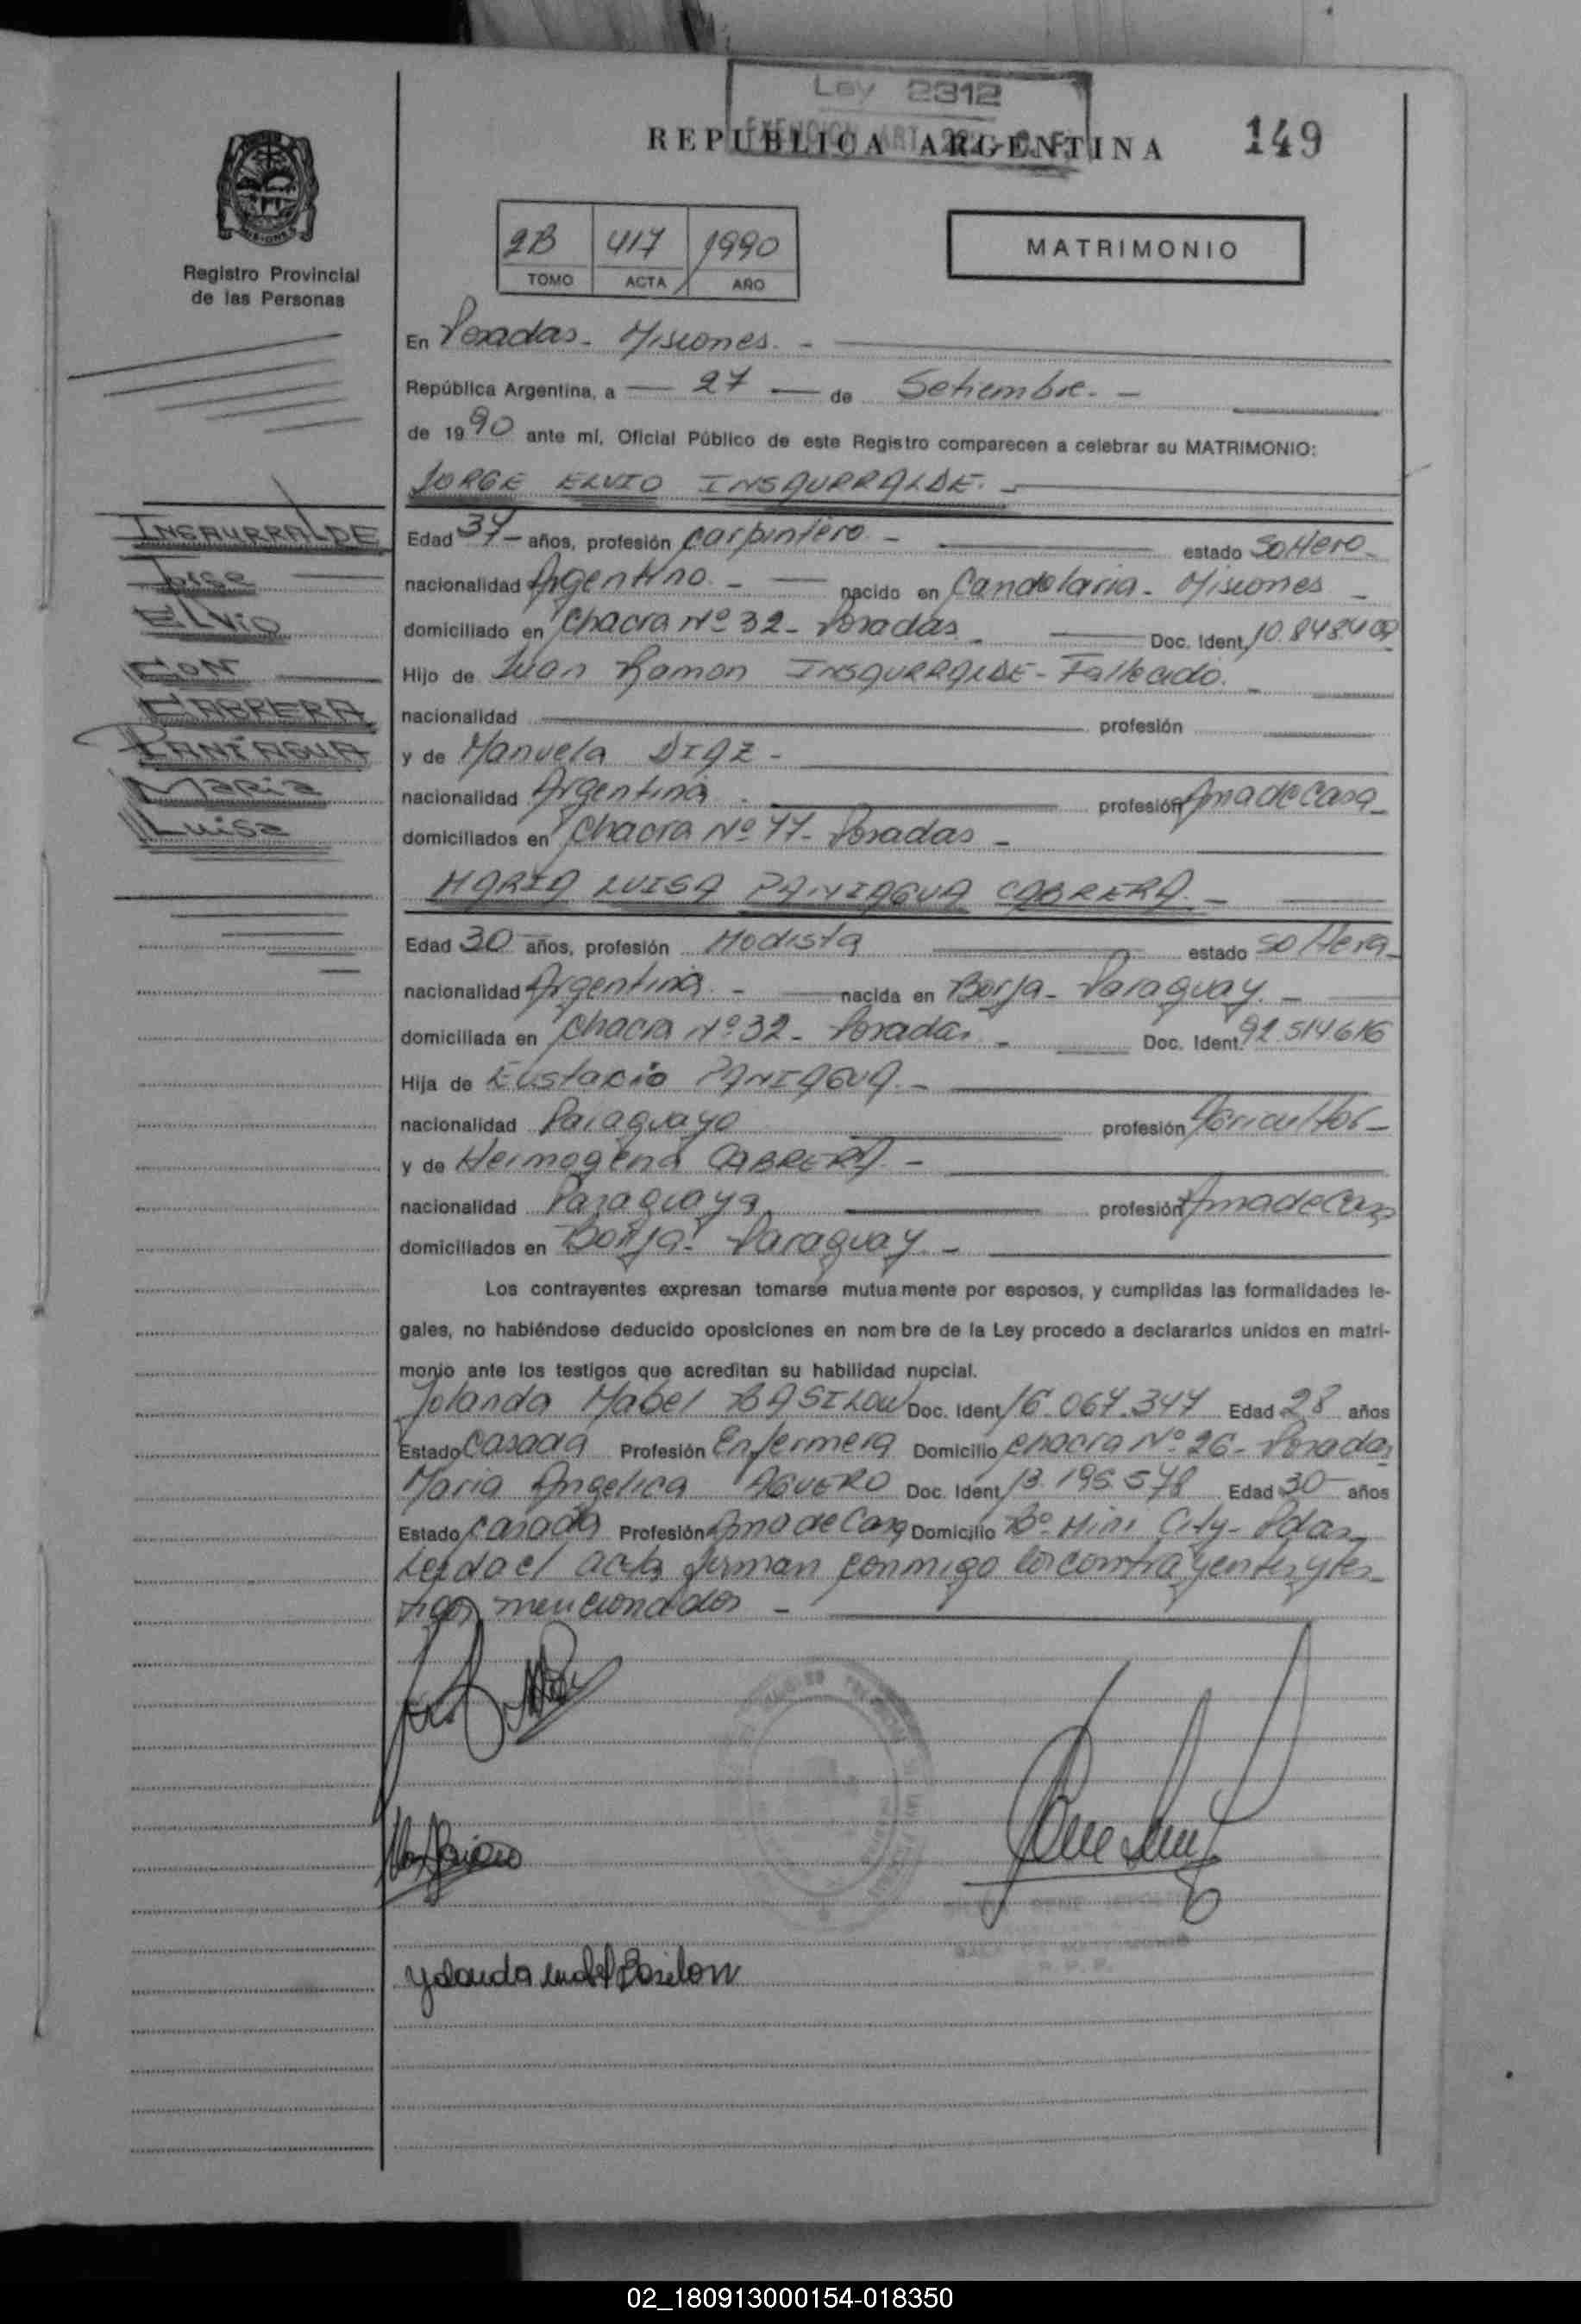 Ley 2312
REPUBLICA ARGENTINA
149
MISIONES
Registro Provincial
de las Personas
2B 417 1990
TOMO ACTA AÑO
MATRIMONIO
En Posadas - Misiones. -
República Argentina, a — 27 — de Setiembre. -
de 1990 ante mí, Oficial Público de este Registro comparecen a celebrar su MATRIMONIO:
JORGE ELVIO INSAURRALDE. -
INSAURRALDE
Jorge
ELVIO
CON
CABRERA
PANIAGUA
Maria
Luisa
Edad 37 - años, profesión carpintero - estado Soltero -
nacionalidad Argentino. - nacido en Candelaria - Misiones -
domiciliado en Chacra Nº 32 - Posadas - Doc. Ident. 10.848.409
Hijo de Juan Ramon INSAURRALDE - Fallecido. -
nacionalidad profesión
y de Manuela DIAZ -
nacionalidad Argentina. profesión Ama de Casa -
domiciliados en Chacra Nº 77 - Posadas -
MARIA LUISA PANIAGUA CABRERA. -
Edad 30 años, profesión Modista estado Soltera -
nacionalidad Argentina. - nacida en Borja - Paraguay. -
domiciliada en Chacra Nº 32 - Posadas - Doc. Ident. 92.514.616
Hija de Eustacio PANIAGUA. -
nacionalidad Paraguayo profesión Agricultor -
y de Hermogena CABRERA. -
nacionalidad Paraguaya profesión Ama de Casa
domiciliados en Borja - Paraguay -
Los contrayentes expresan tomarse mutuamente por esposos, y cumplidas las formalidades le-
gales, no habiéndose deducido oposiciones en nombre de la Ley procedo a declararlos unidos en matri-
monio ante los testigos que acreditan su habilidad nupcial.
Yolanda Mabel BASILOW Doc. Ident. 16.067.347 Edad 28 años
Estado Casada Profesión Enfermera Domicilio chacra Nº 26 - Posadas
Maria Angelica AGUERO Doc. Ident. 13.195.578 Edad 30 años
Estado Casada Profesión Ama de Casa Domicilio Bº Mini City - Pdas -
Leida el acta firman conmigo los contrayentes y tes-
tigos mencionados -
Yolanda Mabel Basilow
02_180913000154-018350